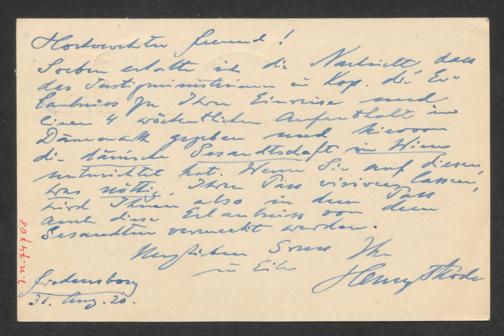 Hochverehrter Freund!
Soeben erhalte ich die Nachricht, dass
das Justizministerium in Kop. die Er-
laubniss zu Ihrer Einreise und
einen 4 wöchentlichen Aufenthalt in
Dänemark gegeben und hievon
die dänische Gesandtschaft in Wien
unterrichtet hat. Wenn Sie auf diesen,
was nötig, Ihren Pass visiren lassen,
wird Ihnen also in dem Pass
auch diese Erlaubniss von dem
Gesandten vermerkt werden.
Mit lieben Gruss Ihr
in Eile
Henry Thode
Fredensborg
31. Aug. 20.
I.N. 74708